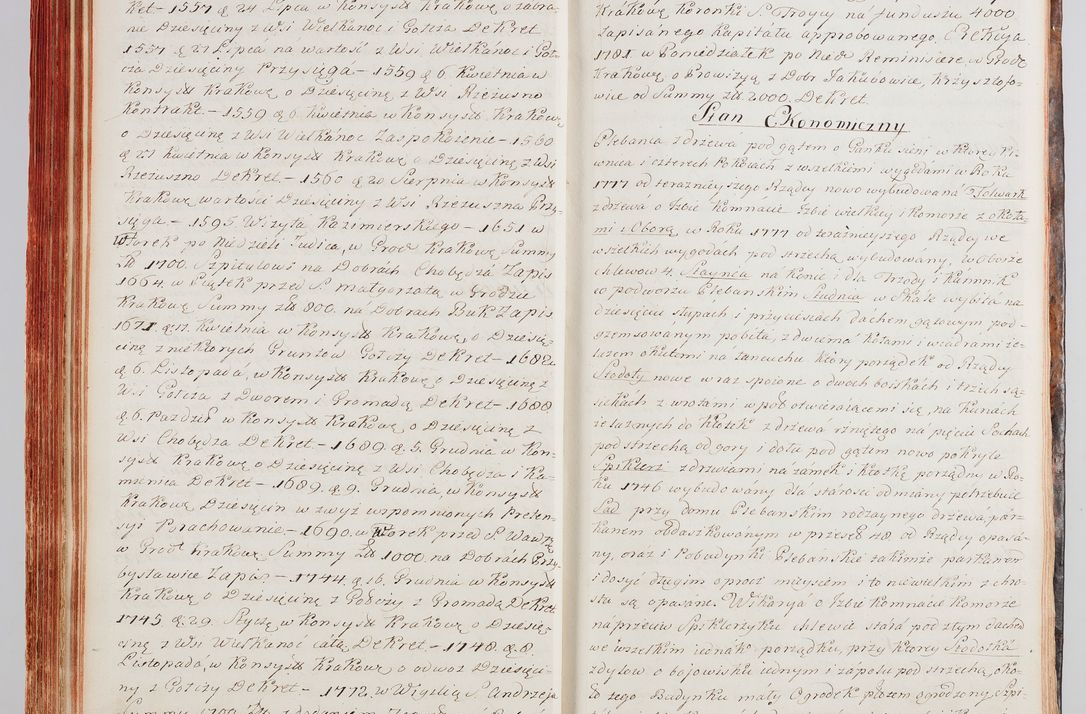 Ket – 1557 d. 24 Lipca w Konsyst. Krakowe o zabra-
nie Dziesięciny z Wsi Wielkanoc i Gołcza Dekret
1557 d. 27 Lipca na wartość z Wsi Wielkanoc i Goł-
cza Dziesięciny Przysięga – 1559 d. 6. Kwietnia w
Konsyst. Krakowe o Dziesięcinę z Wsi Rzezusno
Kontrakt – 1559 d. 6. Kwietnia w Konsyst. Krakowe
o Dziesięcinę z Wsi Wielkanoc Zaspokoienie – 1560
d. 27 Kwietnia w Konsyst. Krakowe o Dziesięcinę z Wsi
Rzezuszno Dekret – 1560 d. 20 Sierpnia w Konsyst.
Krakowe wartości Dziesięciny z Wsi Rzezuszna Przy-
sięga – 1595 Wizyta Kazimierskiego – 1651 w
Wtorek po Niedzieli Judica, w Grod. Krakowe Summy
Zł. 1700. Szpitalowi na Dobrach Chobędza Zapis
1664. w Piątek przed S. Małgorzatą w Grodzie
Krakowe Summy Zł. 800. na Dobrach Buk Zapis
1671. d. 17. Kwietnia w Konsyst. Krakowe, o Dziesię-
cinę z niektorych Gruntów Gołczy Dekret – 1682
d. 6. Listopada, w Konsyst. Krakowe, o Dziesięcinę z
Wsi Gołcza z Dworem i Gromadą Dekret – 1688
d. 6. Paździer. w Konsyst. Krakowe, o Dziesięcinę z
Wsi Chobędza Dekret. – 1689. d. 5. Grudnia, w Kon-
syst. Krakowe, o Dziesięcinę z Wsi Chobędza i Ka-
mienia Dekret – 1689. d. 9. Grudnia, w Konsyst.
Krakowe Dziesięcin w zwyż wspomnionych Preten-
syi Porachowanie – 1690. w Wtorek przed S. Wawrz.
w Grod. Krakowe Summy Zł. 1000. na Dobrach Przy-
bysławice Zapis – 1744. d. 16. Grudnia w Konsyst.
Krakowe o Dziesięcinę z Gołczy z Gromadą Dekret
1745. d. 29. Stycz. w Konsyst. Krakowe o Dziesię-
cinę z Wsi Wielkanoc całą Dekret – 1748. d. 8.
Listopada, w Konsyst. Krakowe, o odwoz Dziesięci-
ny z Gołczy Dekret – 1772. w Wigilią S. Andrzeja
Krakowe Koronki S. Troycy na fundusz 4000
Zapisanego Kapitału approbowanego. Erekcya
1781. w Poniedziałek po Nied. Reminiscere w Grod.
Krakowe, o Prowizyą z Dobr Jakubowice, Krzysztofo-
wice od Summy Zł. 2000. Dekret.
Stan Ekonomiczny
Plebania z drzewa pod gątem o Ganku sieni w Ktorey Pi-
wnica i czterech Pokoiach z wszelkiemi wygodami w Roku
1777 od teraznieyszego Rządcy nowo wybudowana Folwark
z drzewa o Izbie Komnacie Izbie wielkiey i Komorze z okoła-
mi i Oborą, w Roku 1777 od teraznieyszego Rządcy we
wszelkich wygodach pod strzechą wybudowany, w Oborze
chlewow 4. Staynia na Konie i dla Trzody i Karmnik
w podworzu Plebanskim Studnia w skale wybita na
dziesięciu słupach i przyciesiach dachem gątowym pod-
gzemsowanym pobita, z dwuma Kołami i wiadrami że-
lazem okutemi na łancuchu Ktory porządek od Rządcy
Stodoły nowe wraz spoione o dwoch boiskach i trzech są-
siekach z wrotami w poł otwieraiącemi się, na Kunach
żelaznych do Kłotek z drzewa rżniętego na pięciu Sochach
pod strzechą od gory i dołu pod gątem nowo pokryte
Spiklerz z drzwiami na zamek i Kłotkę porządny w Ro-
ku 1746 wybudowany dla starości odmiany potrzebuie
Sad przy domu Plebanskim rodzaynego drzewa par-
kanem oddaszkowanym w przeseł 48. od Rządcy opasa-
ny, oraz i Pobudynki Plebanskie takimże parkanem
i dosyć długim oprocz mieyscem i to niewielkim z chro-
stu są opasane. Wikaryia o Izbie Komnacie Komorze
naprzeciw Spiklerzyku chlewie stara pod złym dachem
we wszelkim iednak porządku, przy Ktorey Stodołka
zdyłow o boiowisku iednym i zapolu pod strzechą, oko-
ło tego Budynku mały Ogrodek płotem ogrodzony Szpi-